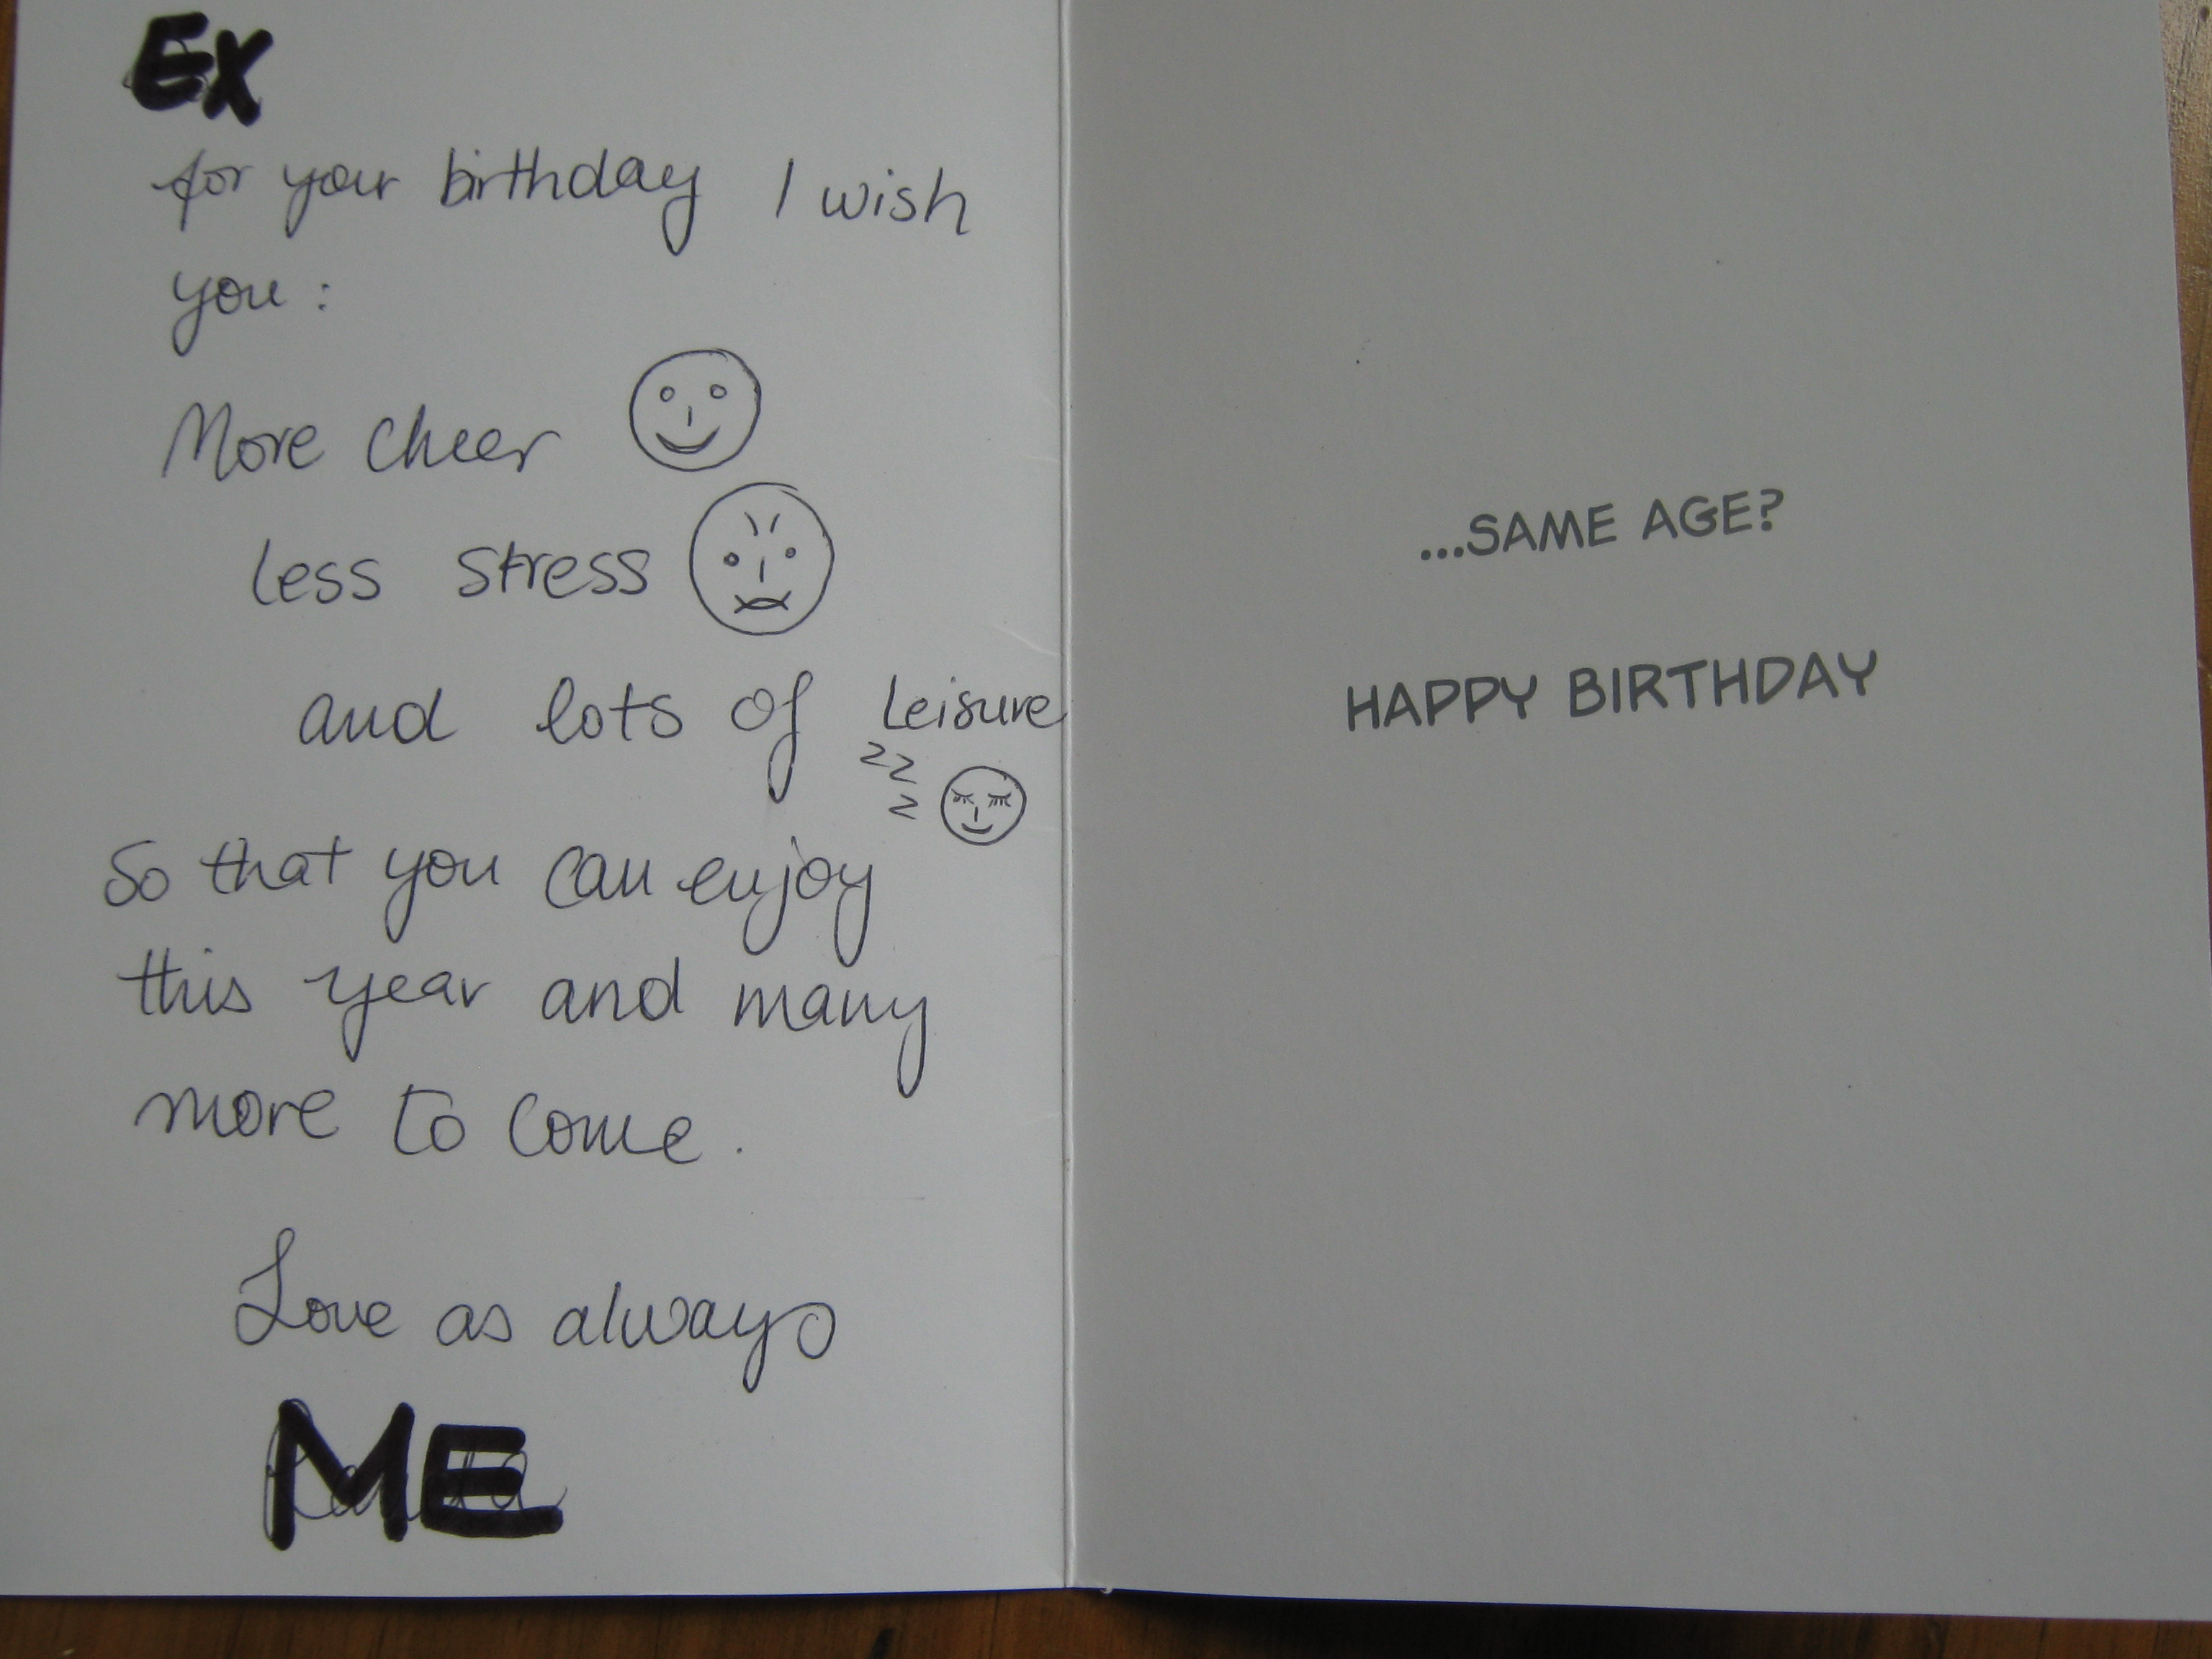 EX
for your birthday I wish
you:
More cheer
less stress
and lots of Leisure
zz
z
So that you can enjoy
this year and many
more to come.
Love as always
ME
...SAME AGE?
HAPPY BIRTHDAY